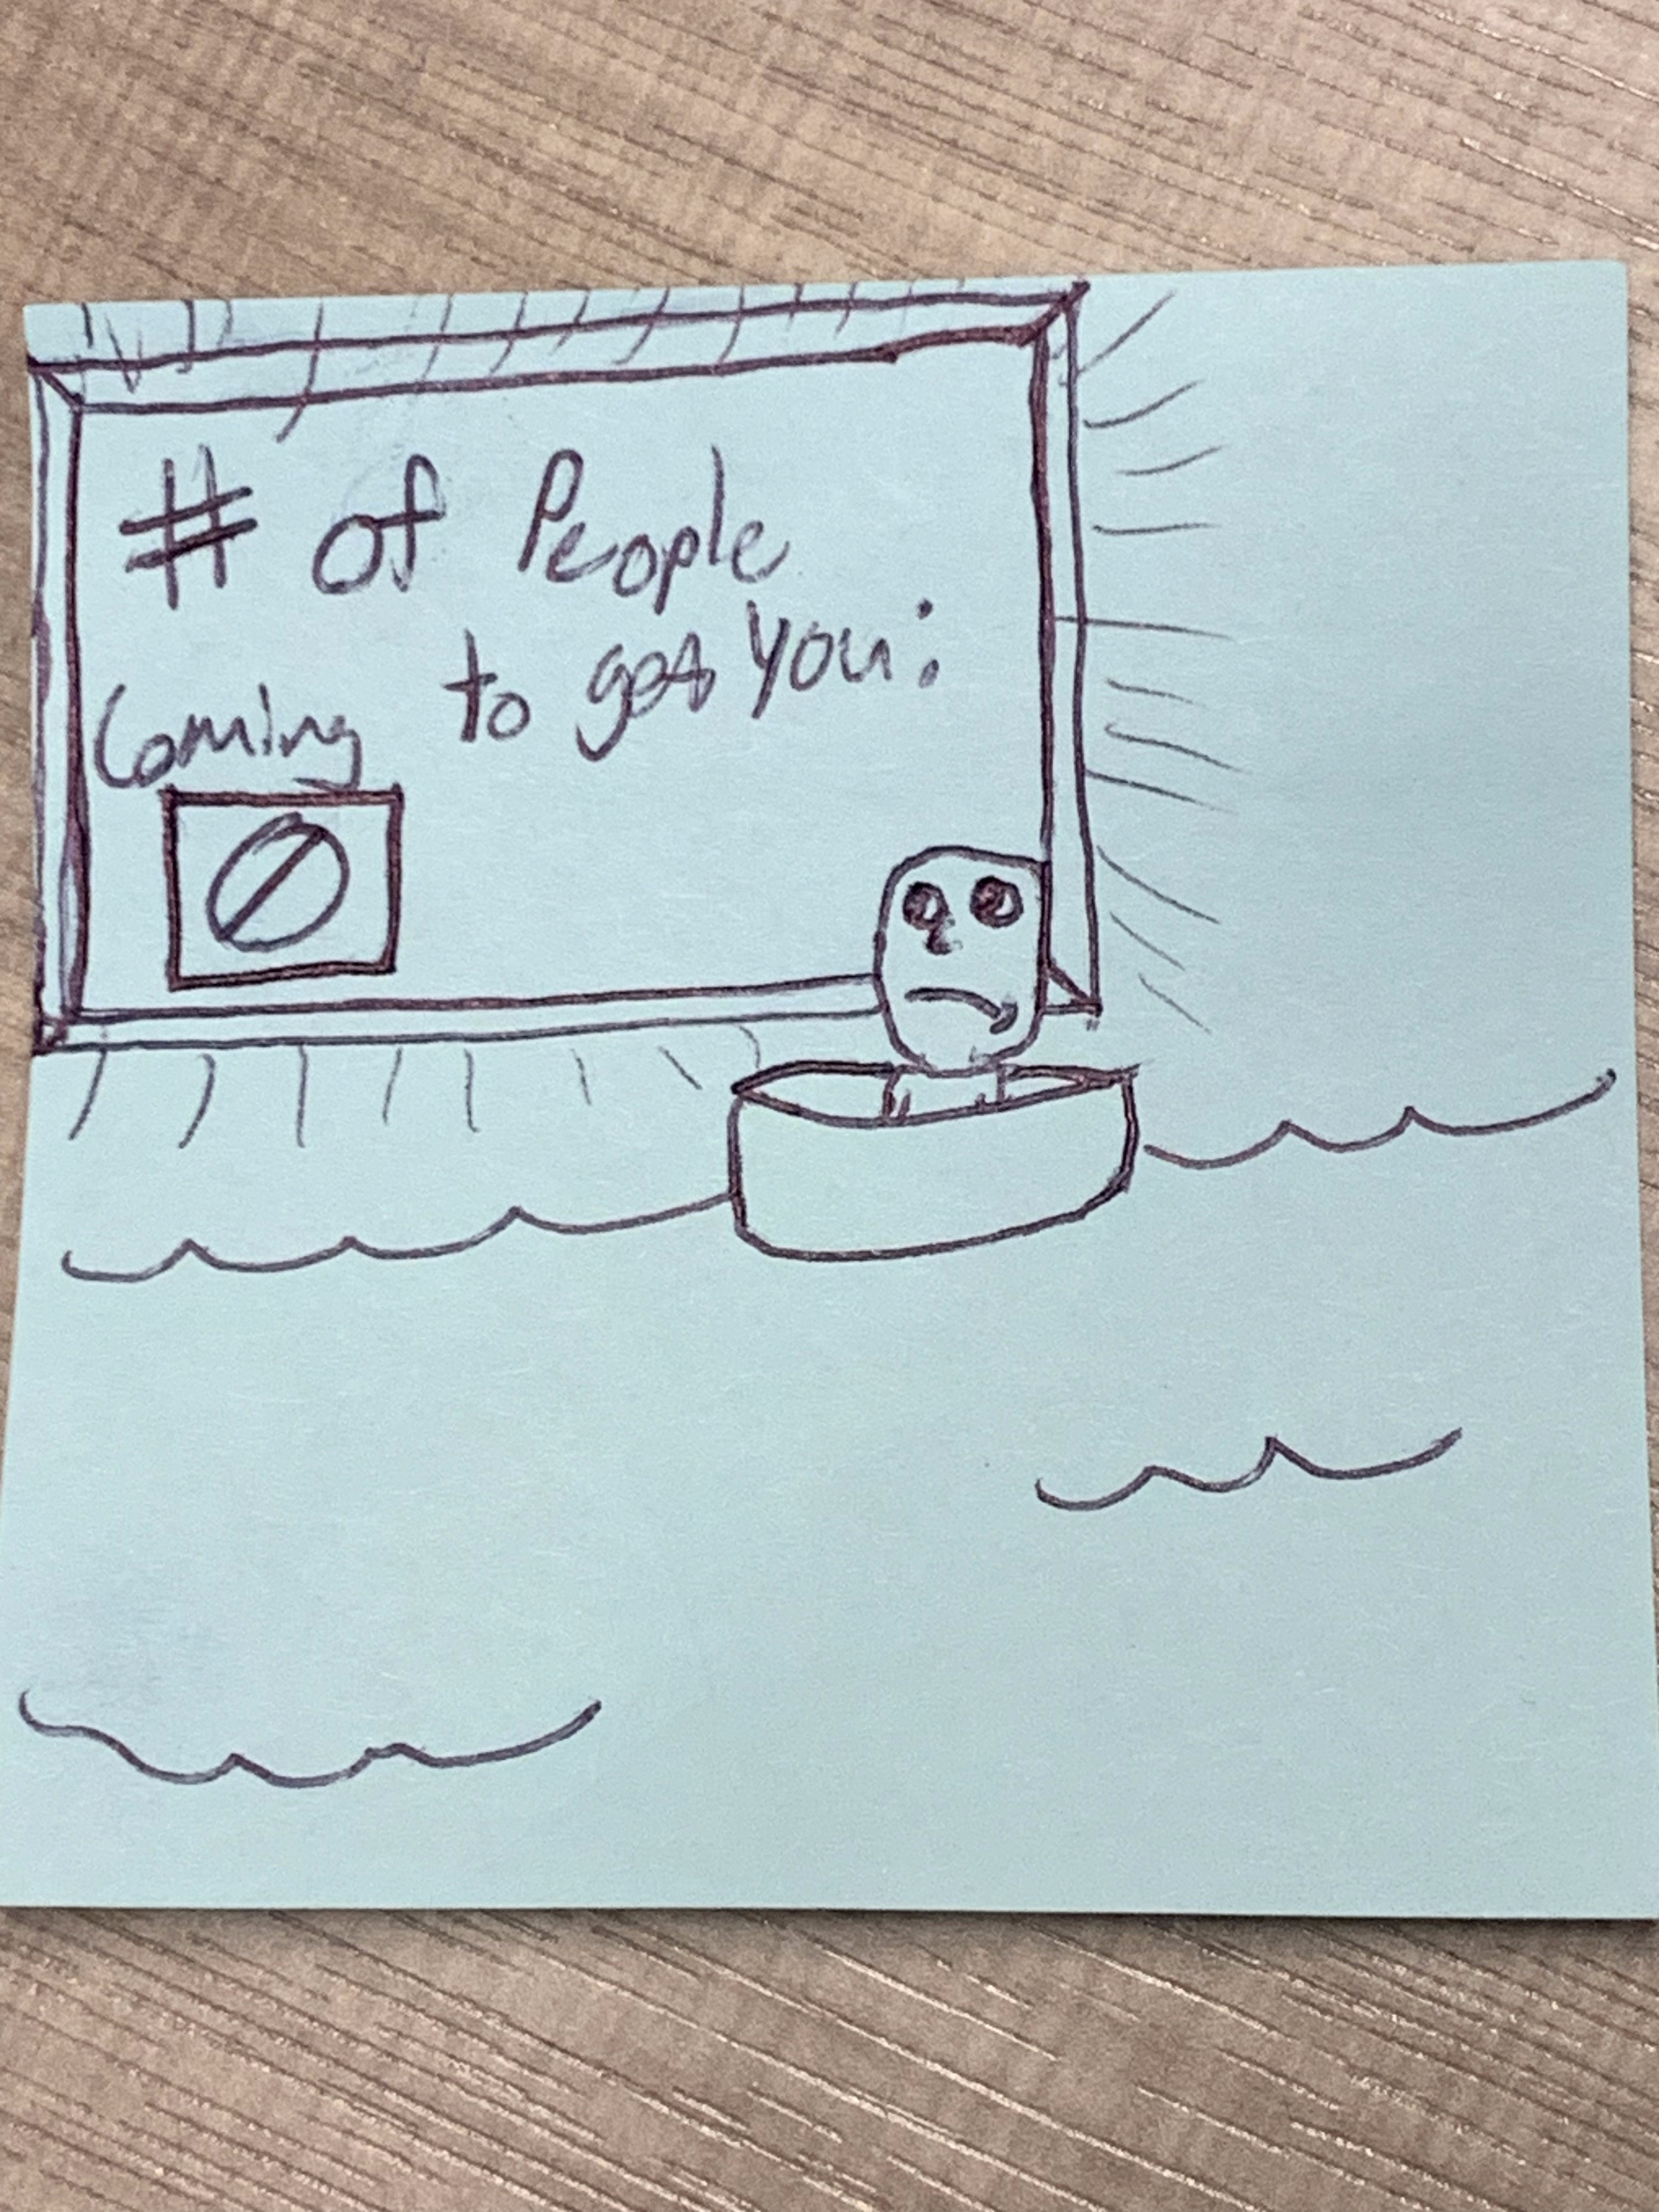 # of People
Coming to get you:
0